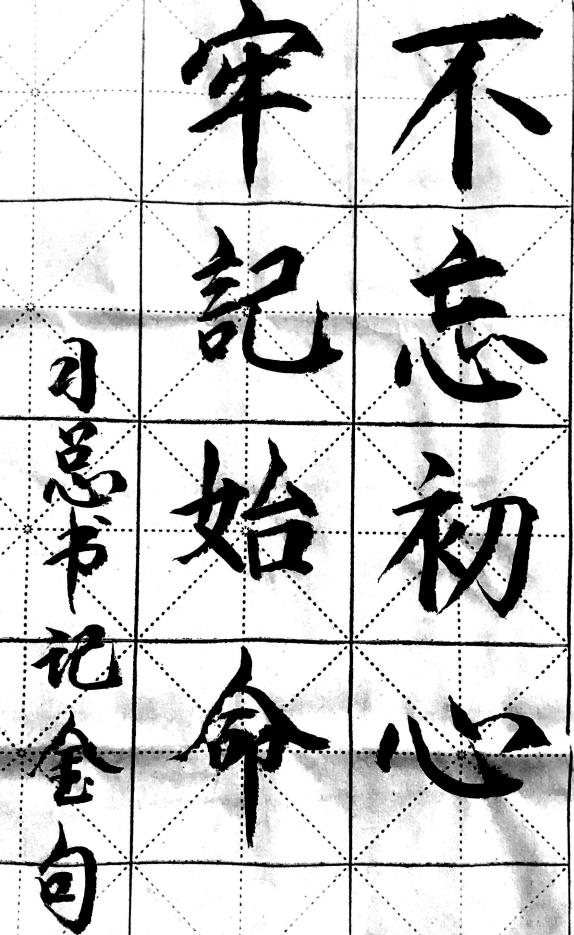 不忘初心
牢記始命
习总书记金句